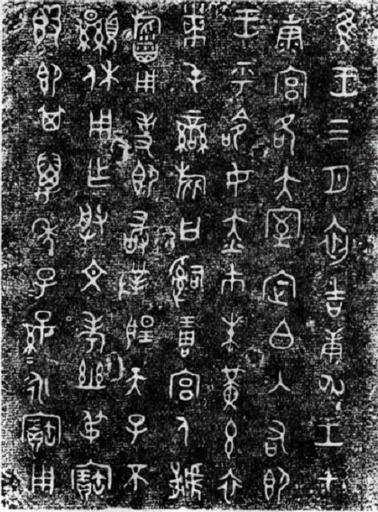 隹王三月初吉庚申王才
康宮各大室定白入右即
王乎命女赤巿朱黃玄衣
黹屯䜌旂曰嗣琱宮人虢
用事即敢對揚天子不
顯休用乍朕文考幽弔寶
簋即其萬年子子孫孫永寶用